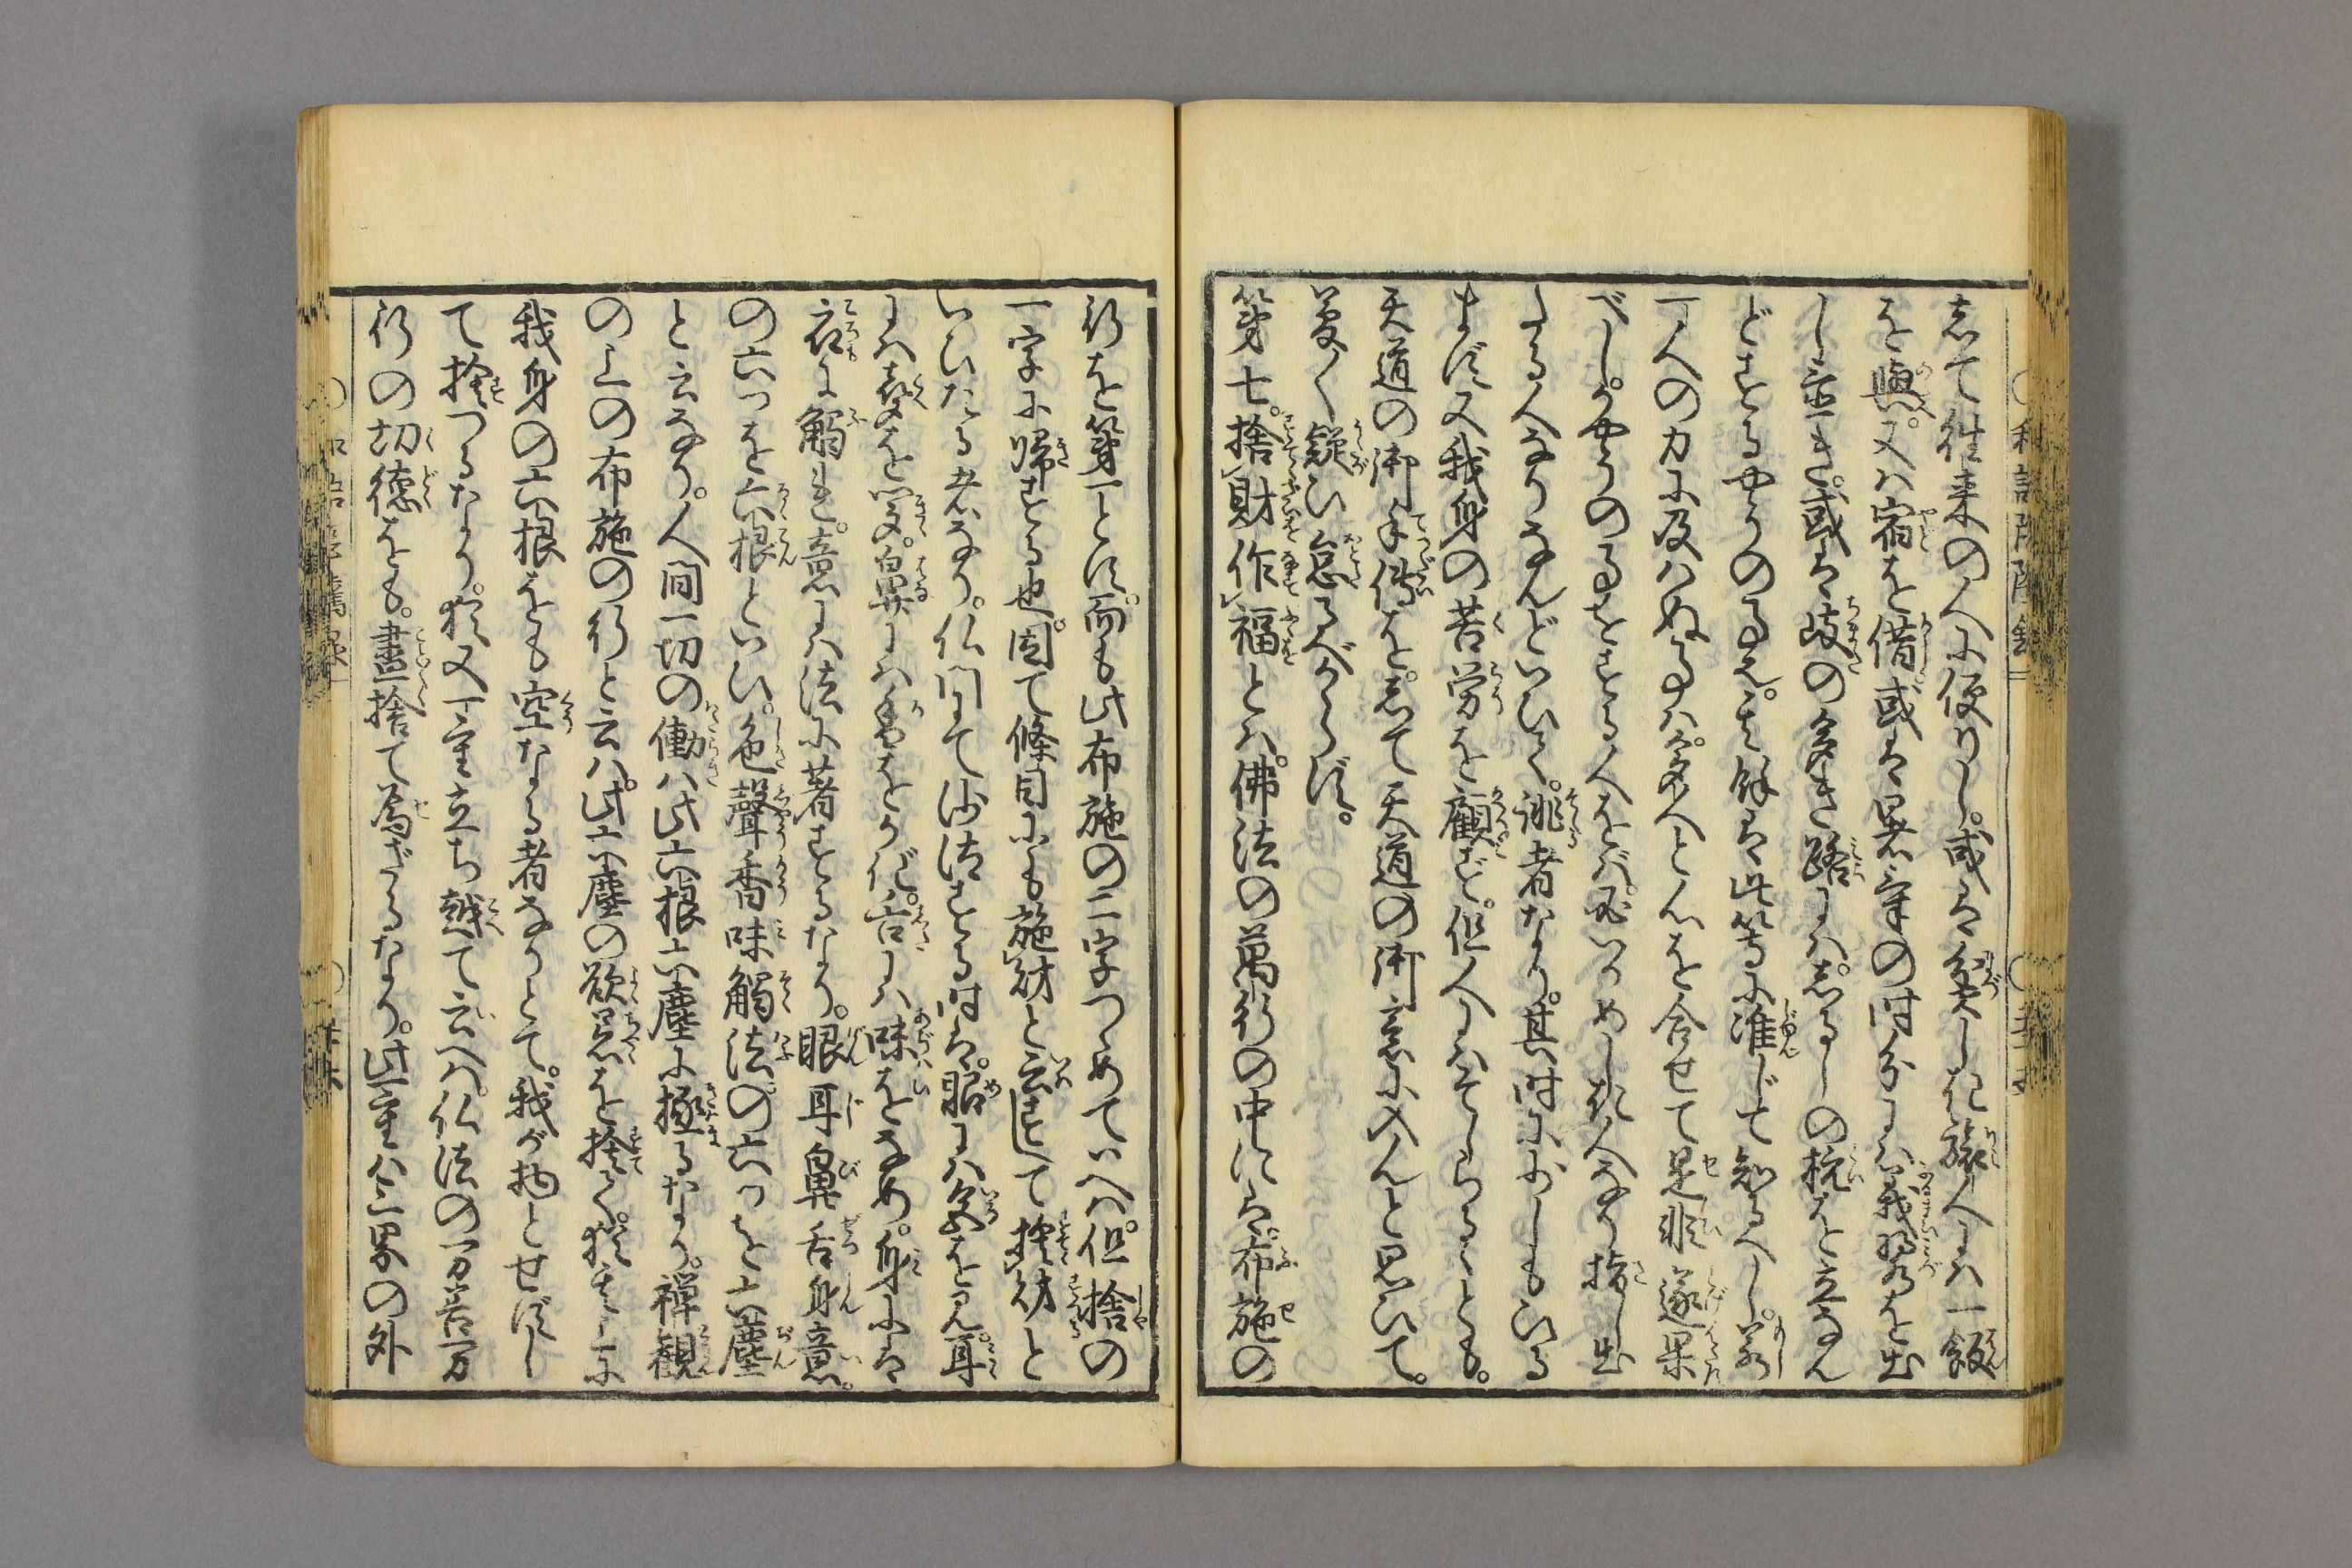 して徃来の人に便りし。或は貧しき旅人には一飯
を與へ。又は宿を借し或は暑寒の時分には我帑を出
し。或は岐の多き路には。しるしの杭を立なん
どするやうの事也。其餘は此等に准じて知るべし。若
一人の力に及ハぬ事ハ。多人と心を合せて是非遂果
べし。かやうの事をする人をバ。
たる人なりなんどいひて。誹者なり。其時に少しもひる
まず。又我身の苦労を顧ず。但人にはそしらるゝとも。
天道の御手傳を。して天道の御意に入んと思いて。
夢〱疑ひ怠るべからず。
第七。捨財作福とハ。佛法の萬行の中には。布施の
行を第一とす。而も此布施の二字つゞめていへハ。但捨の
一字に帰する也。因て條目にも施財と云ずして捨財と
いひたる者なり。仏門にて沙汰する時は。眼には色を見。耳
には聲を聞。鼻には香をかぎ。舌には味をなめ。身には
衣に觸れ。意には法に著するなり。眼耳鼻舌身意。
の六つを六根といひ。色聲香味觸法の六つを六塵
と云なり。人間一切の働ハ此六根六塵に極るなり。禅観
の上の布施の行と云ハ。此六塵の欲忍を捨て。猶其上に
我身の六根をも空なる者なりとて。我が物とせずし
て捨つるなり。猶又一重立ち越て云へハ。仏法の万善万
行の功徳をも。盡捨て為ざるなり。此一重ハ三界の外